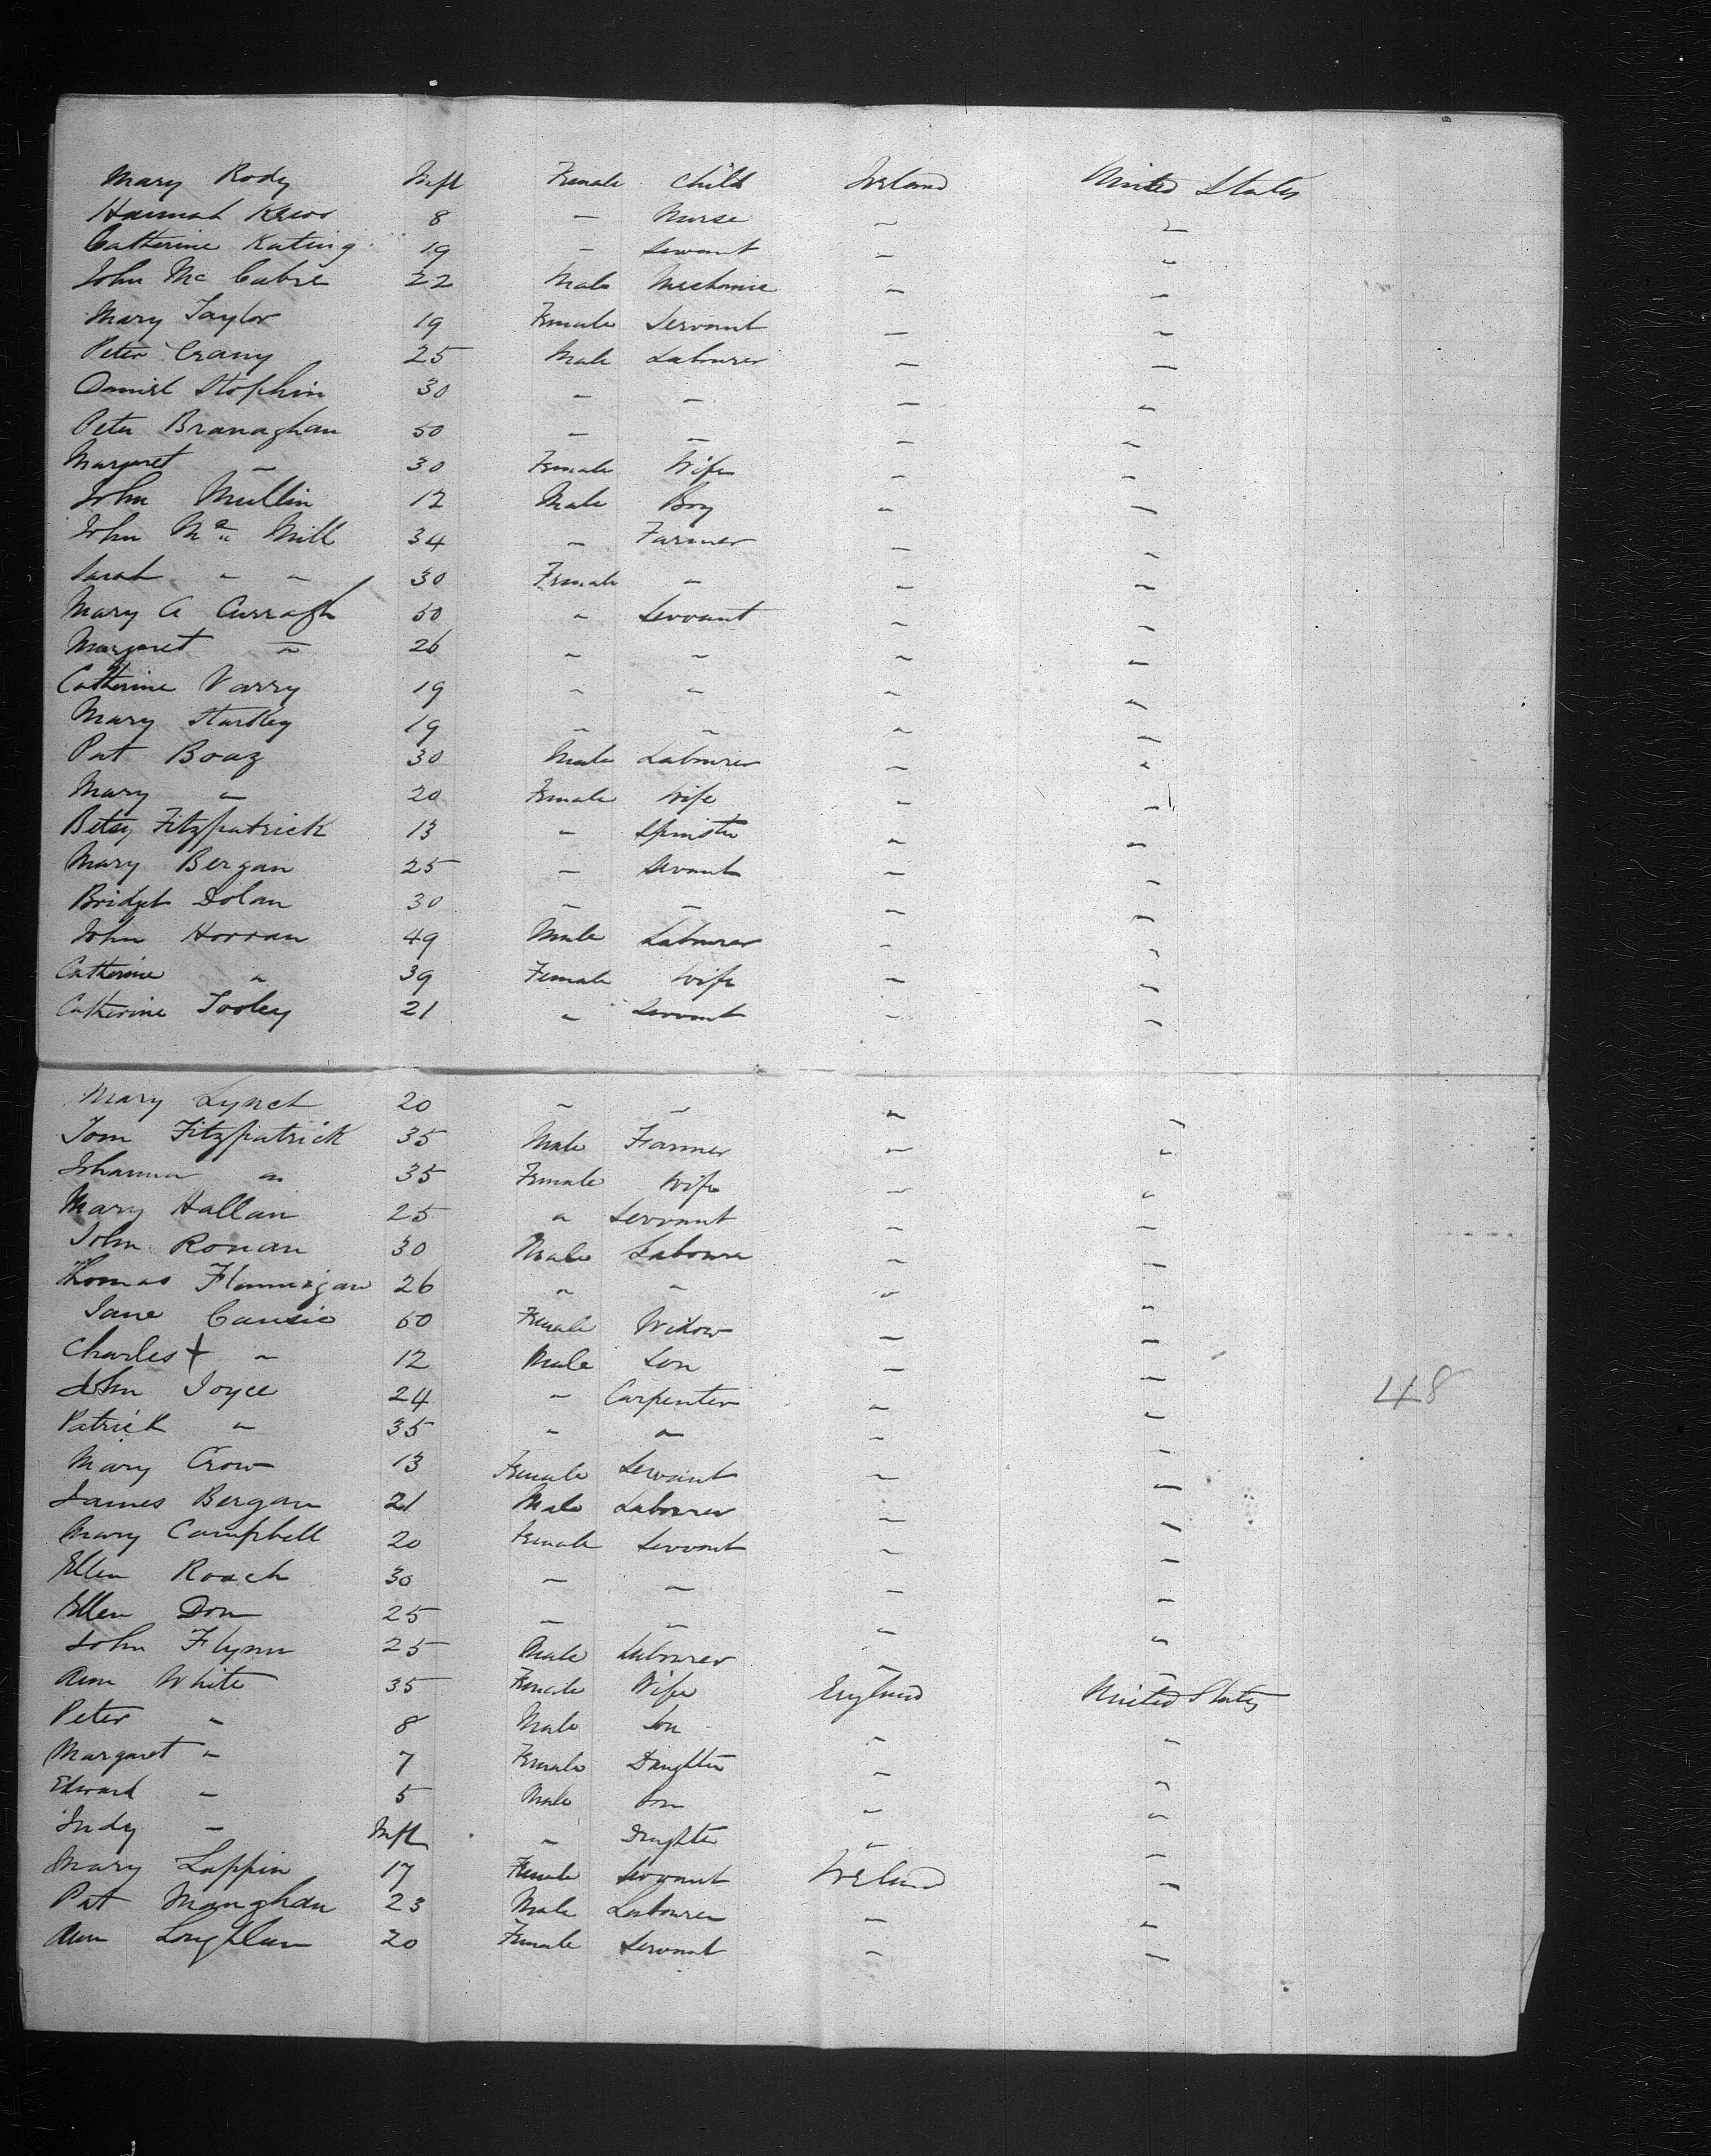 Mary Rody Inft Female Child Ireland United States
Hannah 8 — Nurse — —
Catherine Kating 19 — Servant — —
John Mc Cabre 22 Male Mechanic — —
Mary Taylor 19 Female Servant — —
Peter Crany 25 Male Labourer — —
Daniel Stophin 30 — — — —
Peter Branaghan 50 — — — —
Margaret — 30 Female Wife — —
John Mullin 12 Male Boy " —
John Mc Mill 34 — Farmer — —
Sarah " " 30 Female — — —
Mary A Curragh 50 " Servant — —
Margaret " 26 — — — —
Catherine Varry 19 — — — —
Mary Starkey 19 — — — —
Pat Boaz 30 Male Labourer — "
Mary " 20 Female Wife — —
Betsy Fitzpatrick 13 — Spinster — —
Mary Bergan 25 — Servant — —
Bridget Dolan 30 — — — —
John Horran 49 Male Labourer — —
Catherine " 39 Female Wife — —
Catherine Tooley 21 — Servant — —
Mary Lynch 20 — — " —
Tom Fitzpatrick 35 Male Farmer — "
Johanna " 35 Female Wife — "
Mary Hallan 25 " Servant — —
John Ronan 30 Male Laboure — —
Thomas Flannigan 26 " " " "
Jane 60 Female Widow — —
Charles + " 12 Male Son — —
John Joyce 24 — Carpenter — — 48
Patrick " 35 " " — —
Mary Crow 13 Female Servant — —
James Bergan 21 Male Labourer — —
Mary Campbell 20 Female Servant — —
Ellen Roach 30 — — — —
Ellen Don 25 — — — "
John Flynn 25 Male Labourer — —
Ann White 35 Female Wife England United States
Peter " 8 Male Son " —
Margaret " 7 Female Daughter — "
Edward — 5 Male Son — "
Judy — Inft " Daughter " —
Mary Lappin 17 Female Servant Ireland —
Pat Manghan 23 Male Labourer — —
Ann Loughlan 20 Female Servant — —